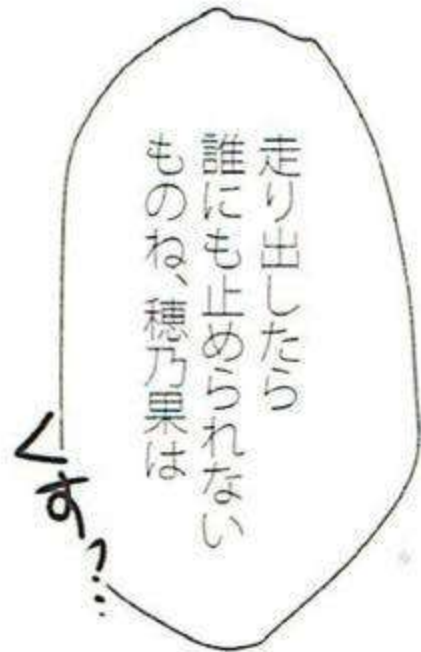 走り出したら
誰にも止められない
ものね、穂乃果は
くすっ…